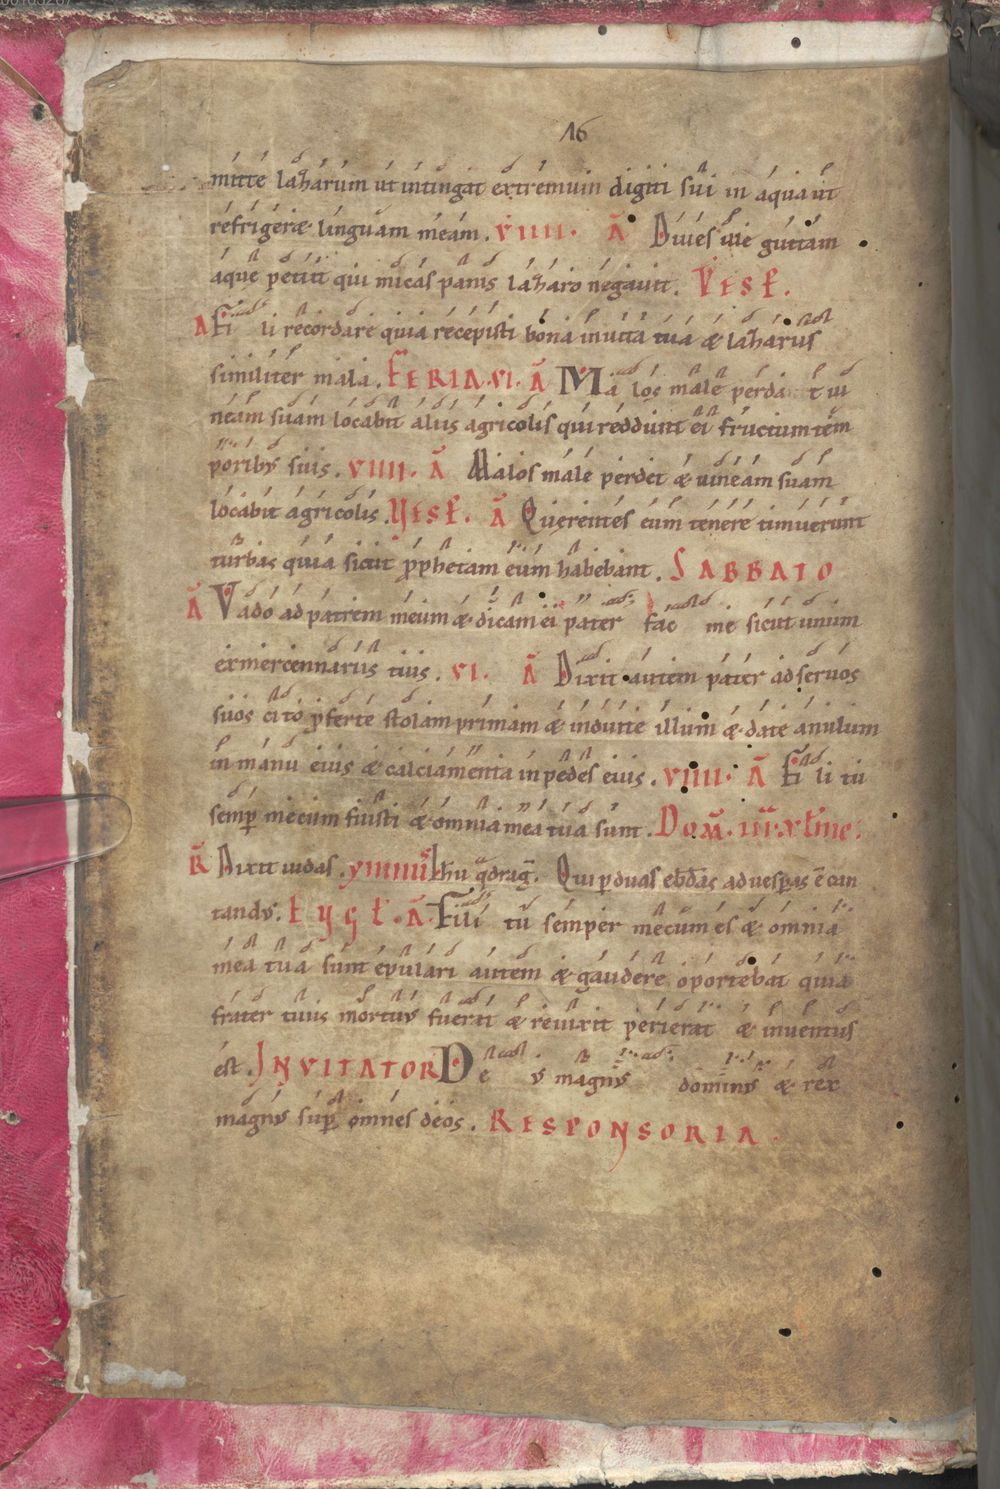 16
mitte lazharum ut intingat extremum digiti sui in aqua ut
refrigeræ linguam meam. VIIII. ā Diues ille guttam
aque petiit qui micas panis lazharo negauit. VESP̄.
A Fi li recordare quia recepisti bona in uita tua æ lazharus
similiter mala. FERIA.VI. ā Ma los male perda t ui
neam suam locabit aliis agricolis qui reddunt ei fructum tem
poribꝰ suis. VIIII. ā Malos male perdet æ uineam suam
locabit agricolis. VESP̄. ā Querentes eum tenere timuerunt
turbas quia sicut ꝓphetam eum habebant. SABBATO
ā Vado ad patrem meum æ dicam ei pater fac me sicut unum
ex mercennariis tuis. VI. ā Dixit autem pater ad seruos
suos cito ꝓferte stolam primam æ induite illum æ date anulum
in manu eius æ calciamenta in pedes eius. VIIII. ā Fi li tu
semꝑ mecum fuisti æ omnia mea tua sunt. DOM̄. III. XL̄me:
R̄ Dixit iudas. qdraḡ. Qui ꝑ duas ebd̄as ad uesꝑas ē can
tandꝰ. ā Fili tu semper mecum es æ omnia
mea tua sunt epulari autem æ gaudere oportebat quia
frater tuus mortuꝰ fuerat æ reuixit perierat æ inuentus
est. INVITATOR De ꝰ magnꝰ dominꝰ æ rex
magnꝰ suꝑ omnes deos. RESPONSORIA.